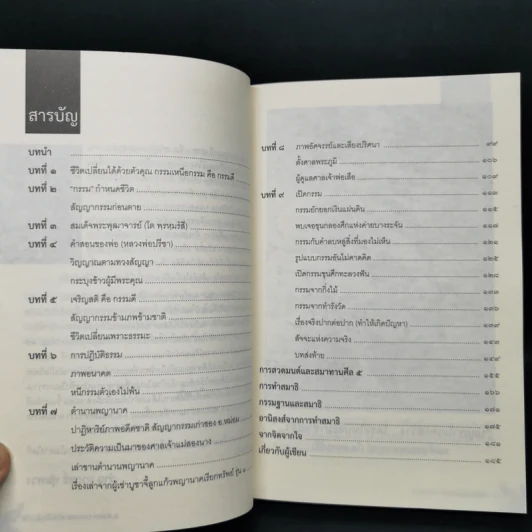 สารบัญ
บทนำ
บทที่ ๑ ชีวิตเปลี่ยนได้ด้วยตัวคุณ กรรมเหนือกรรม คือ กรรมดี
บทที่ ๒ "กรรม" กำหนดชีวิต
สัญญากรรมก่อนตาย
บทที่ ๓ สมเด็จพระพุฒาจารย์ (โต พรหมรังสี)
บทที่ ๔ คำสอนของพ่อ (หลวงพ่อปรีชา)
วิญญาณตามทวงสัญญา
กระบุงข้าวผู้มีพระคุณ
บทที่ ๕ เจริญสติ คือ กรรมดี
สัญญากรรมข้ามภพข้ามชาติ
ชีวิตเปลี่ยนเพราะธรรมะ
บทที่ ๖ การปฏิบัติธรรม
ภาพอนาคต
หนีกรรมตัวเองไม่พ้น
บทที่ ๗ ตำนานพญานาค
ปาฏิหาริย์ภาพอดีตชาติ สัญญากรรมเก่าของ อ.หม่อม
ประวัติความเป็นมาของศาลเจ้าแม่สองนาง
เล่าขานตำนานพญานาค
เรื่องเล่าจากผู้เช่าบูชาจี้ลูกแก้วพญานาคเรียกทรัพย์ รุ่น ๑
บทที่ ๘ ภาพอัศจรรย์และเสียงปริศนา ๙๙
ตั้งศาลพระภูมิ ๑๐๖
ผู้ดูแลศาลเจ้าพ่อเสือ
บทที่ ๙ เปิดกรรม
กรรมยักยอกเงินแผ่นดิน ๑๑๕
พบเจอขุนกลองศึกแห่งค่ายบางระจัน ๑๑๗
กรรมกับคำลบหลู่สิ่งที่มองไม่เห็น
รูปแบบกรรมอันไม่คาดคิด
เปิดกรรมขุนศึกทะลวงฟัน ๑๒๘
กรรมจากกิ่งไม้
กรรมจากทำรังวัด
เรื่องจริงปากต่อปาก (ทำให้เกิดปัญหา)
สัจจะแห่งความจริง
บทส่งท้าย
การสวดมนต์และสมาทานศีล ๕ ๑๕๕
การทำสมาธิ ๑๖๖
กรรมฐานและสมาธิ
อานิสงส์จากการทำสมาธิ
จากจิตจากใจ ๑๘๑
เกี่ยวกับผู้เขียน ๑๘๕